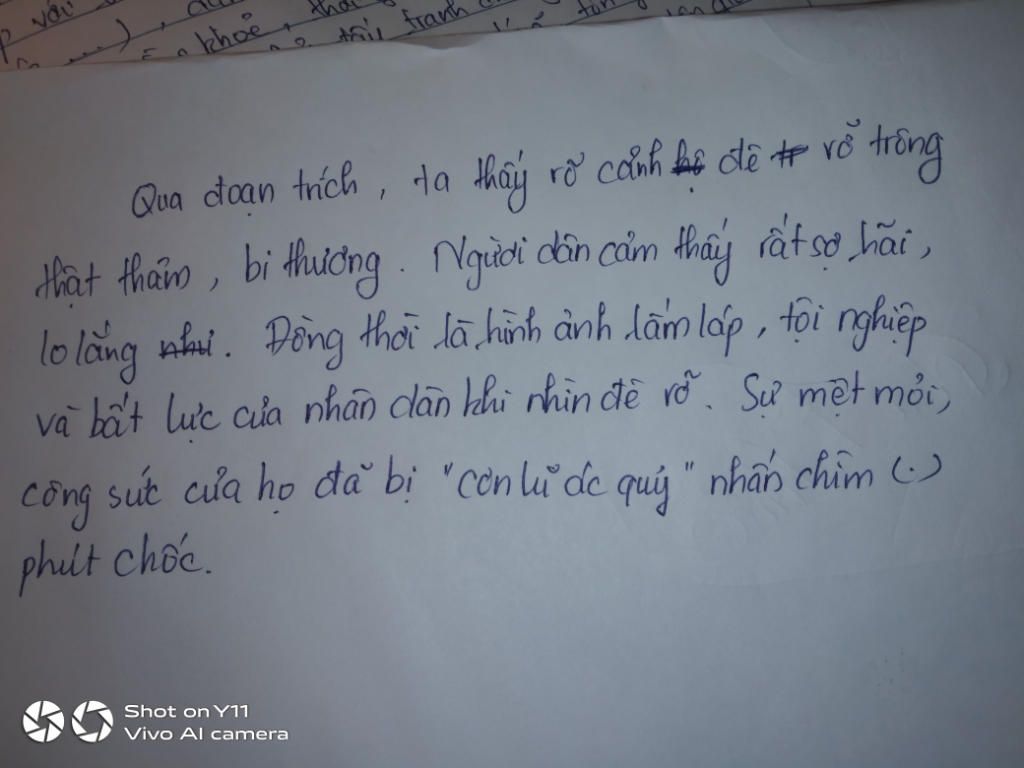 khoẻ,
tranh
Qua đoạn trích, ta thấy rõ cảnh đê vỡ trông
thật thảm, bi thương. Người dân cảm thấy rất sợ hãi,
lo lắng. Đồng thời là hình ảnh lấm láp, tội nghiệp
và bất lực của nhân dân khi nhìn đê vỡ. Sự mệt mỏi,
công sức của họ đã bị "cơn lũ ác quỷ" nhấn chìm (.)
phút chốc.
Shot on Y11
Vivo AI camera